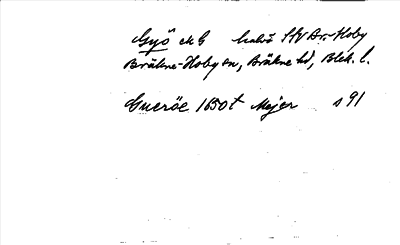 Gyö MG halvö SSV Br.-Hoby
Bräkne-Hoby sn, Bräkne hd, Blek. l.
Gueröe 1650t Mejer s 91